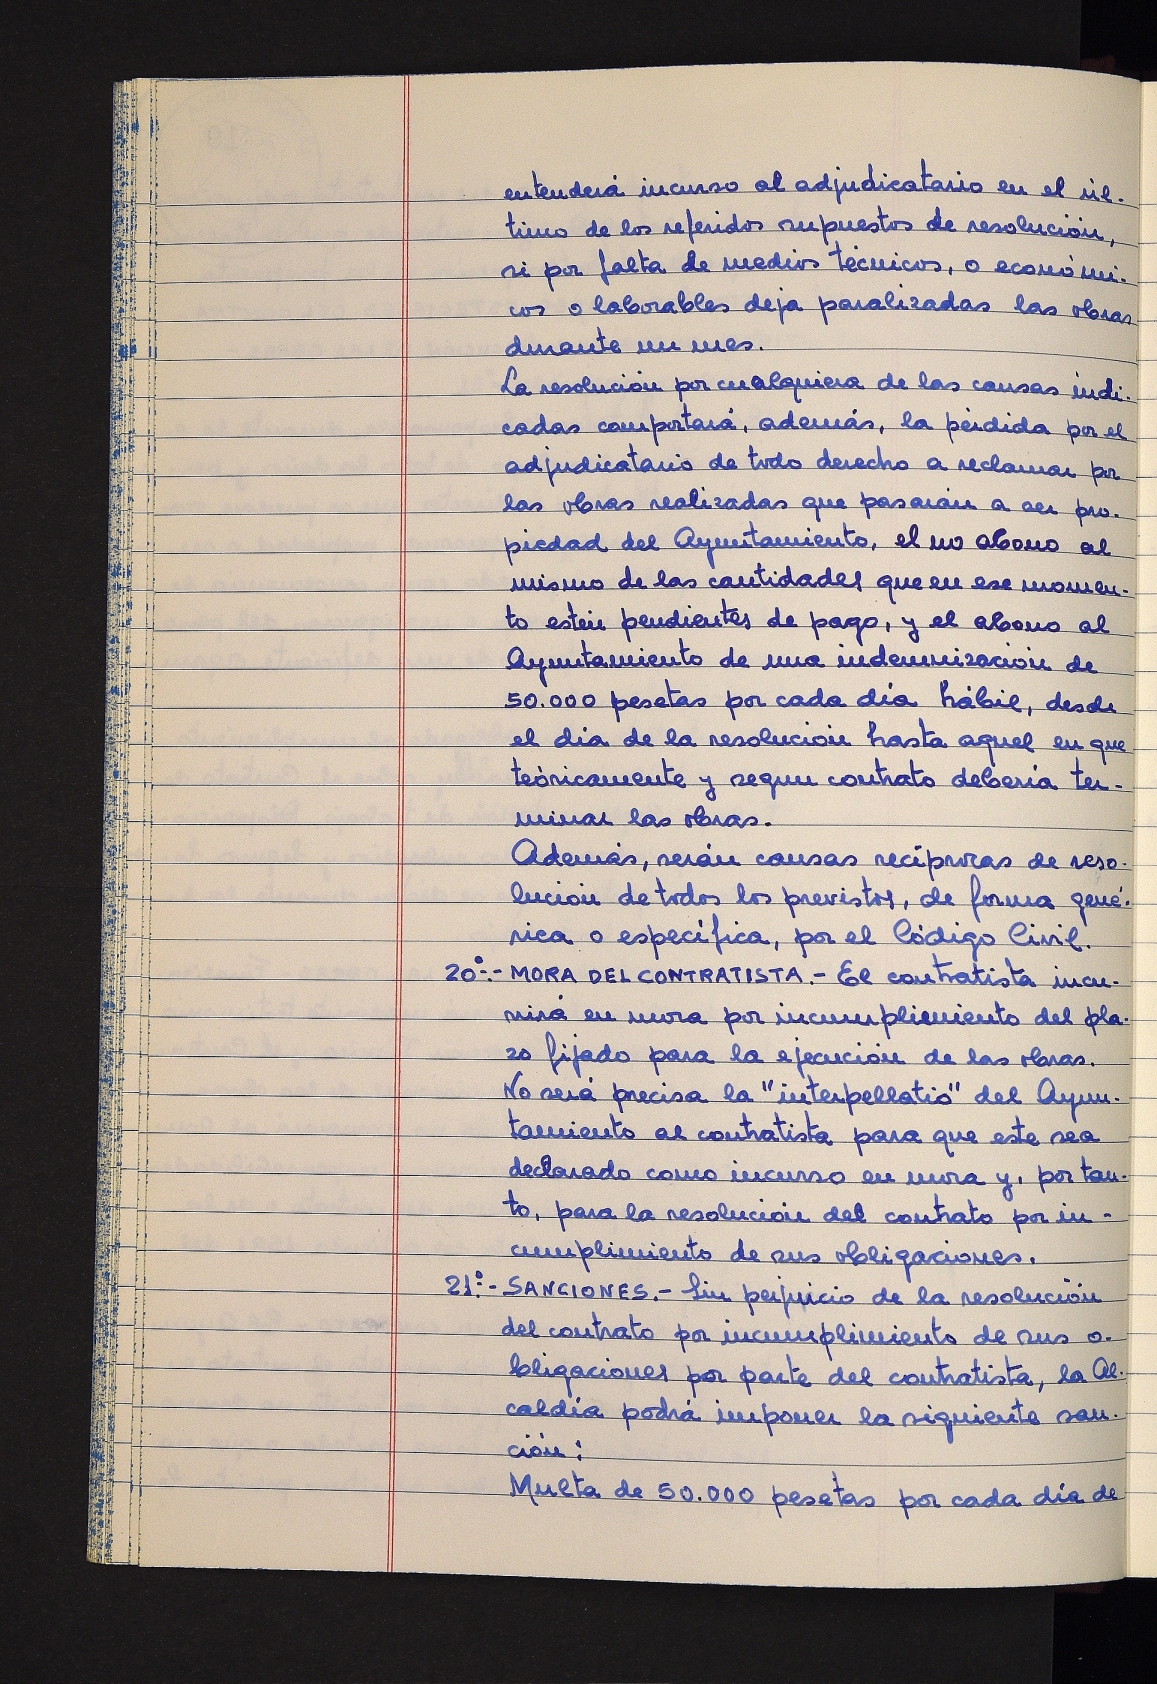 entenderá incurso al adjudicatario en el úl-
timo de los referidos supuestos de resolución,
si por falta de medios técnicos, o económi-
cos o laborables deja paralizadas las obras
durante un mes.
La resolución por cualquiera de las causas indi-
cadas comportará, además, la pérdida por el
adjudicatario de todo derecho a reclamar por
las obras realizadas que pasarán a ser pro-
piedad del Ayuntamiento, el no abono al
mismo de las cantidades que en ese momen-
to estén pendientes de pago, y el abono al
Ayuntamiento de una indemnización de
50.000 pesetas por cada día hábil, desde
el día de la resolución hasta aquel en que
teóricamente y segun contrato debería ter-
minar las obras.
Además, serán causas recíprocas de reso-
lución de todos los previstos, de forma gené-
rica o específica, por el Código Civil.
20º.- MORA DEL CONTRATISTA.- El contratista incu-
rrirá en mora por incumplimiento del pla-
zo fijado para la ejecución de las obras.
No será precisa la "interpellatio" del Ayun-
tamiento al contratista para que este sea
declarado como incurso en mora y, por tan-
to, para la resolución del contrato por in-
cumplimiento de sus obligaciones.
21º.- SANCIONES.- Sin perjuicio de la resolución
del contrato por incumplimiento de sus o-
bligaciones por parte del contratista, la Al-
caldía podrá imponer la siguiente san-
ción:
Multa de 50.000 pesetas por cada día de